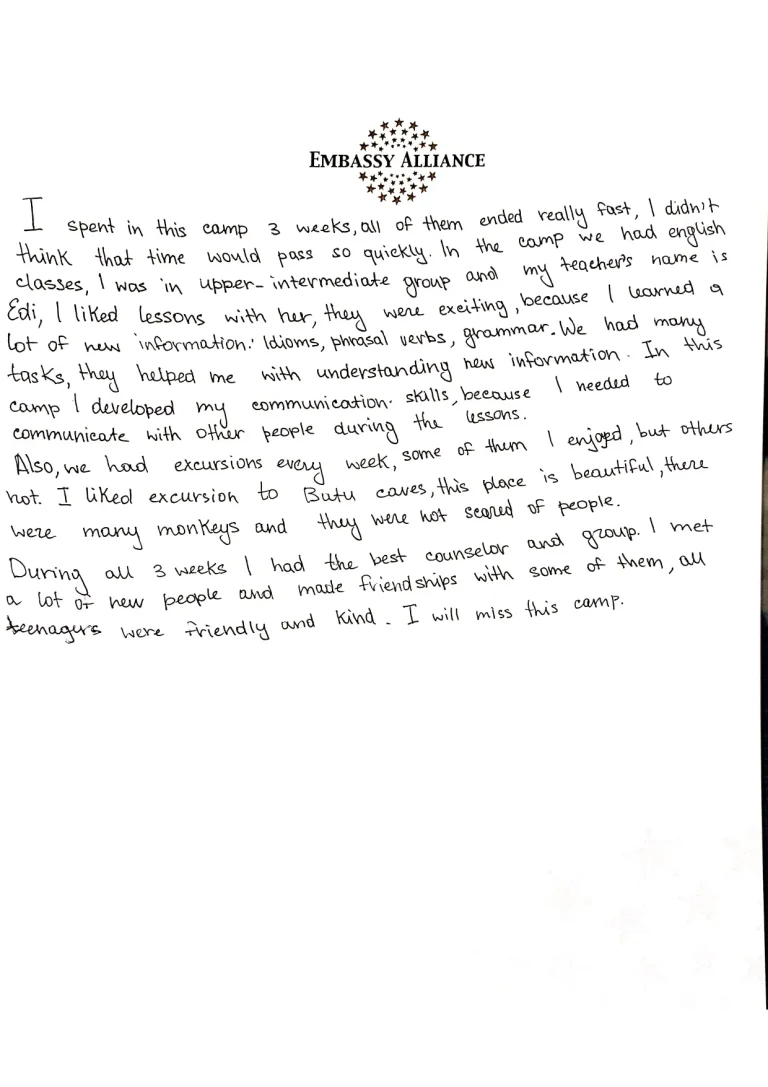 EMBASSY ALLIANCE
I spent in this camp 3 weeks, all of them ended really fast, I didn't
think that time would pass so quickly. In the camp we had english
classes, I was in upper-intermediate group and my teacher's name is
Edi, I liked lessons with her, they were exciting, because I learned a
lot of new information: Idioms, phrasal verbs, grammar. We had many
tasks, they helped me with understanding new information. In this
camp I developed my communication skills, because I needed to
communicate with other people during the lessons.
Also, we had excursions every week, some of them I enjoyed, but others
not. I liked excursion to Butu caves, this place is beautiful, there
were many monkeys and they were not scared of people.
During all 3 weeks I had the best counselor and group. I met
a lot of new people and made friendships with some of them, all
teenagers were friendly and kind. I will miss this camp.